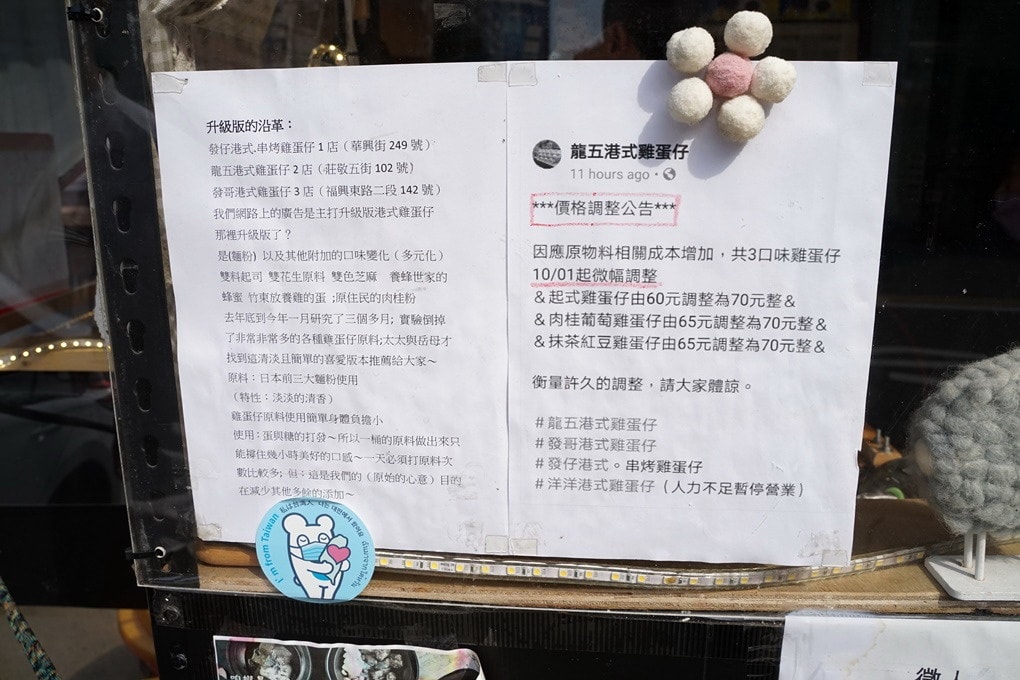 升級版的沿革：
發仔港式.串烤雞蛋仔1店（華興街249號）
龍五港式雞蛋仔2店（莊敬五街102號）
發哥港式雞蛋仔3店（福興東路二段142號）
我們網路上的廣告是主打升級版港式雞蛋仔
那裡升級版了？
是(麵粉) 以及其他附加的口味變化（多元化）
雙料起司 雙花生原料 雙色芝麻 養蜂世家的
蜂蜜 竹東放養雞的蛋 ;原住民的肉桂粉
去年底到今年一月研究了三個多月; 實驗倒掉
了非常非常多的各種雞蛋仔原料;太太與岳母才
找到這清淡且簡單的喜愛版本推薦給大家～
原料：日本前三大麵粉使用
（特性：淡淡的清香）
雞蛋仔原料使用簡單身體負擔小
使用：蛋與糖的打發～所以一桶的原料做出來只
能撐住幾小時美好的口感～一天必須打原料次
數比較多; 但：這是我們的（原始的心意）目的
在減少其他多餘的添加～
龍五港式雞蛋仔
11 hours ago
***價格調整公告***
因應原物料相關成本增加，共3口味雞蛋仔
10/01起微幅調整
＆起式雞蛋仔由60元調整為70元整＆
＆肉桂葡萄雞蛋仔由65元調整為70元整＆
＆抹茶紅豆雞蛋仔由65元調整為70元整＆
衡量許久的調整，請大家體諒。
#龍五港式雞蛋仔
#發哥港式雞蛋仔
#發仔港式。串烤雞蛋仔
#洋洋港式雞蛋仔（人力不足暫停營業）
I'm from Taiwan
私は台湾人
나는 대만에서 왔어요
徵人